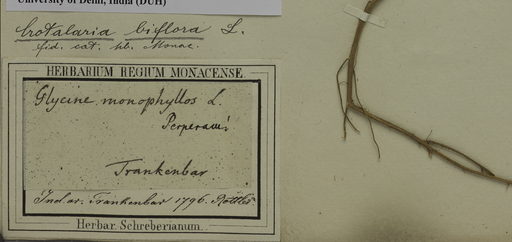 University of Delhi, India (DUH)
Crotalaria biflora L.
fid. cat. hb. Monac.
HERBARIUM REGIUM MONACENSE.
Glycine monophyllos L.
Perperam!
Trankenbar
Ind. or. Trankenbar 1796. Rottler.
Herbar. Schreberianum.